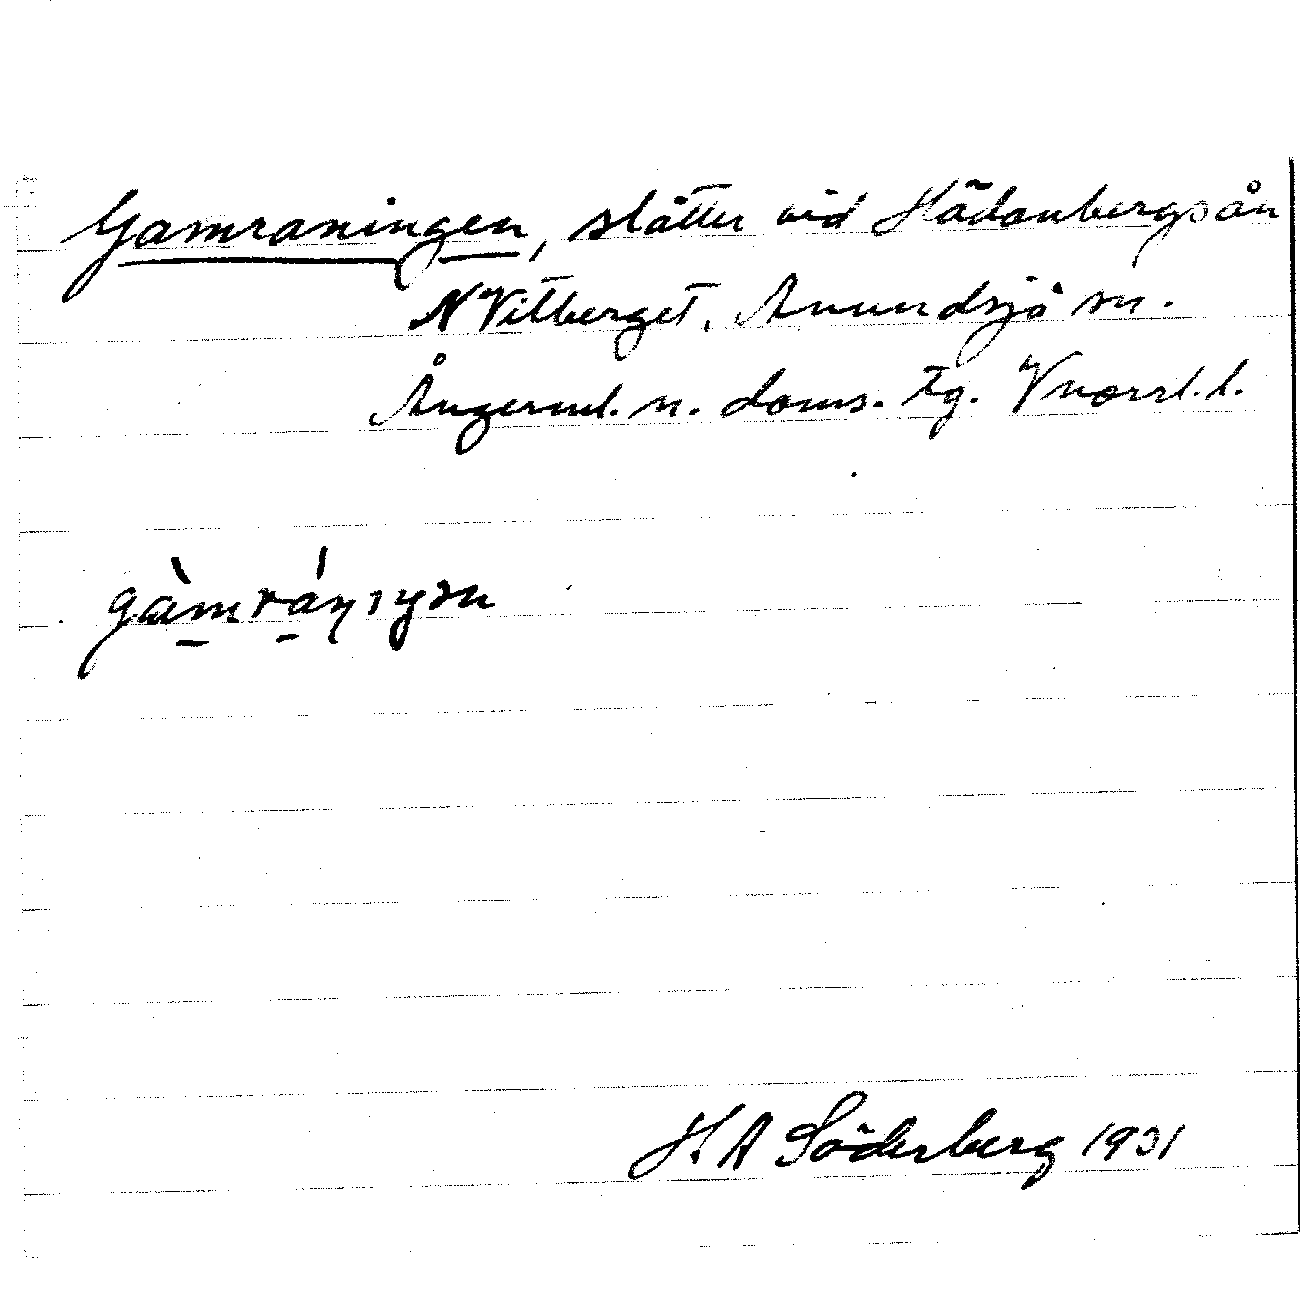 Gamraningen, slåtter vid Hädanbergsån
N Vitberget, Anundsjö sn.
Ångerml. n. doms. tg. Vnorrl. l.
H A Söderberg 1931